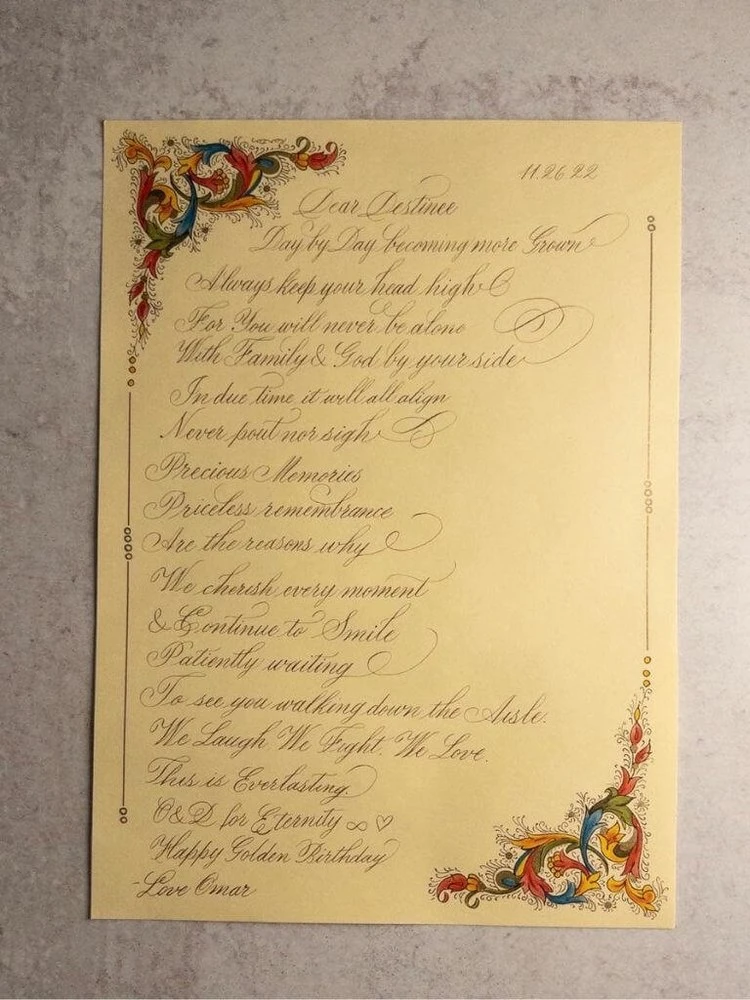 11.26.22
Dear Destinee
Day by Day becoming more Grown
Always keep your head high
For You will never be alone
With Family & God by your side
In due time it will all align
Never pout nor sigh
Precious Memories
Priceless remembrance
Are the reasons why
We cherish every moment
& Continue to Smile
Patiently waiting
To see you walking down the Aisle.
We Laugh, We Fight, We Love.
This is Everlasting.
O&D for Eternity ∞ ♡
Happy Golden Birthday
-Love Omar